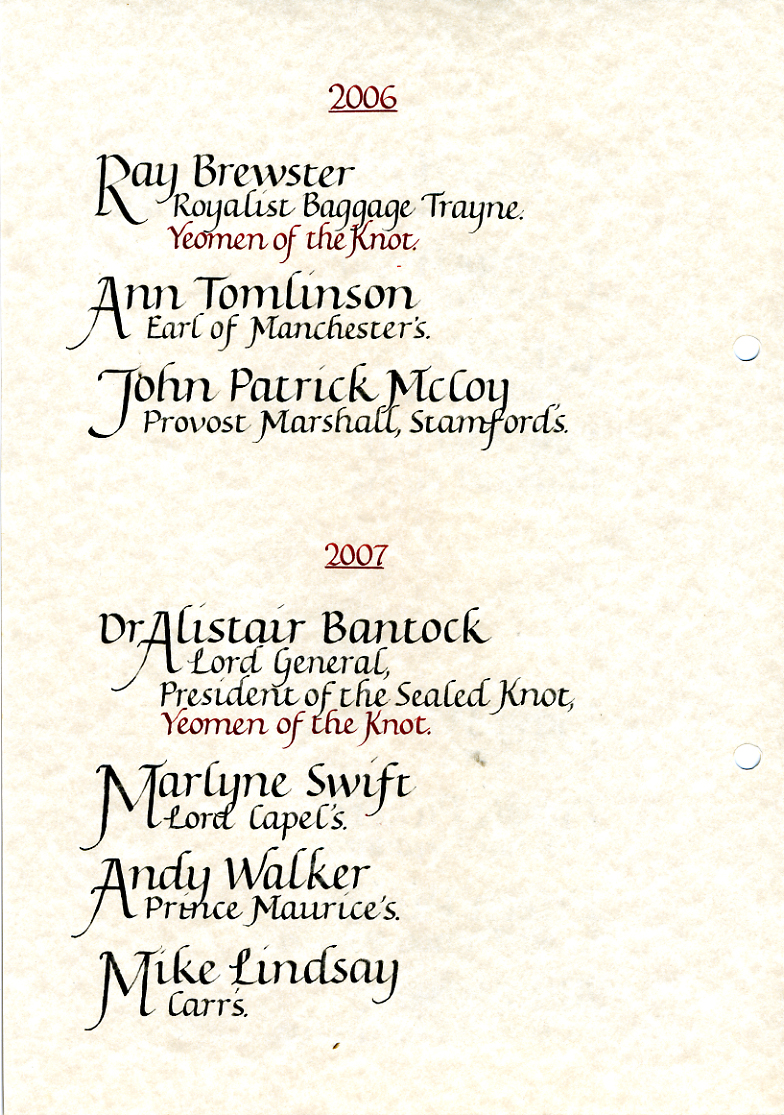 2006
Ray Brewster
Royalist Baggage Trayne.
Yeomen of the Knot.
Ann Tomlinson
Earl of Manchester's.
John Patrick McCoy
Provost Marshall, Stamford's.
2007
Dr Alistair Bantock
Lord General,
President of the Sealed Knot,
Yeomen of the Knot.
Marlyne Swift
Lord Capel's.
Andy Walker
Prince Maurice's.
Mike Lindsay
Carr's.